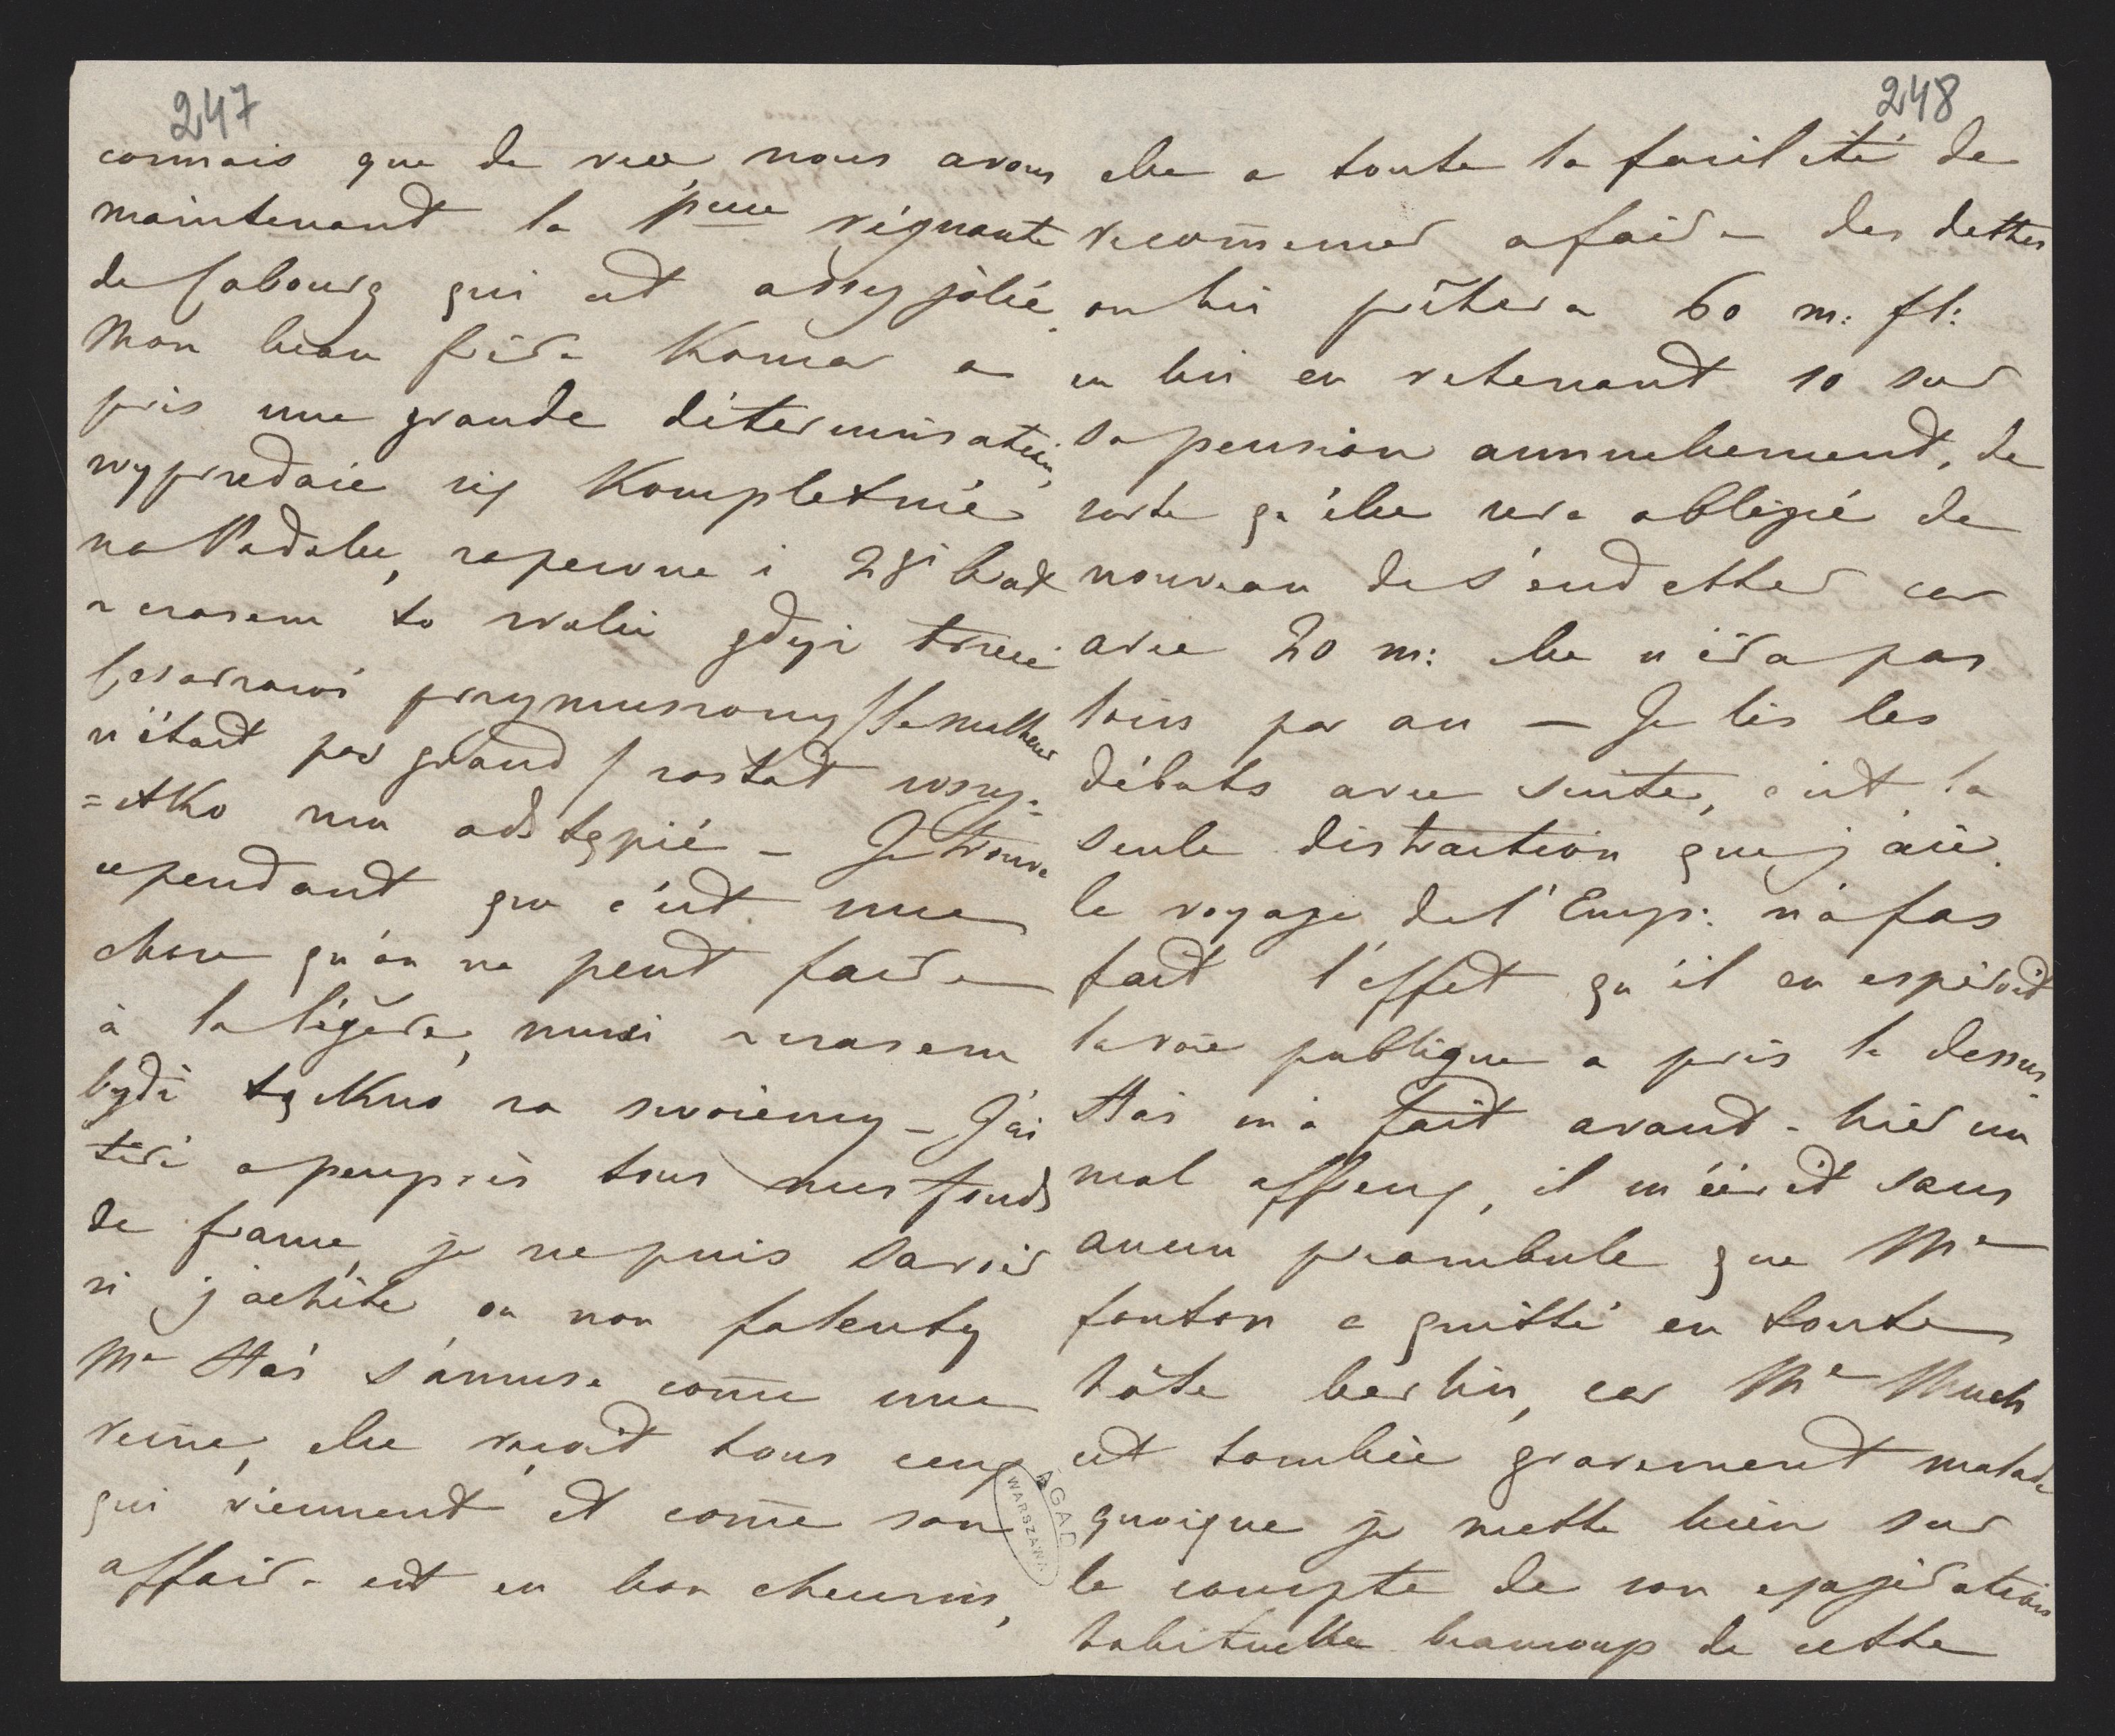 247
connais que de vue, nous avons
maintenant la Psse régnante
de Cobourg qui est assez jolie.
Mon beau frère Komar a
pris une grande détermination,
wyprzedaie się Kompletnie
na Podolu, zapewne i
czasem to woli gdyż trzeci
przymuszony / le malheur
n'était pas grand / został wszy-
=stko mu odstąpić – Je trouve
cependant que c'est une
chose qu'on ne peut faire
à la légère, musi czasem
bydź tęskno za swoiemy – J'ai
tiré apeuprès tous mes fonds
de france, je ne puis savoir
si j'achète ou non
Me Stas s'amuse come une
reine, elle reçoit tous ceux
qui viennent et come son
affaire est en bon chemin,
AGAD
WARSZAWA
248
elle a toute la facilité de
recommencer a faire des dettes
on lui prêtera 60 m: fl:
en lui en retenant 10 sur
sa pension annuellement, de
sorte qu'elle sera obligée de
nouveau de s'endetter car
avec 20 m: elle n'ira pas
loin par an — Je lis les
débats avec suite, c'est la
seule distraction que j'aie.
le voyage de l'Emp: n'a pas
fait l'effet qu'il en espéroit
la voie publique a pris le dessus,
Stas m'a fait avant-hier un
mal affreux, il m'écrit sans
aucun preambule que Me
fonton a quitté en toute
hâte berlin, car Me
est tombée gravement malade
quoique je mette bien sur
le compte de son exagération
habituelle beaucoup de cette